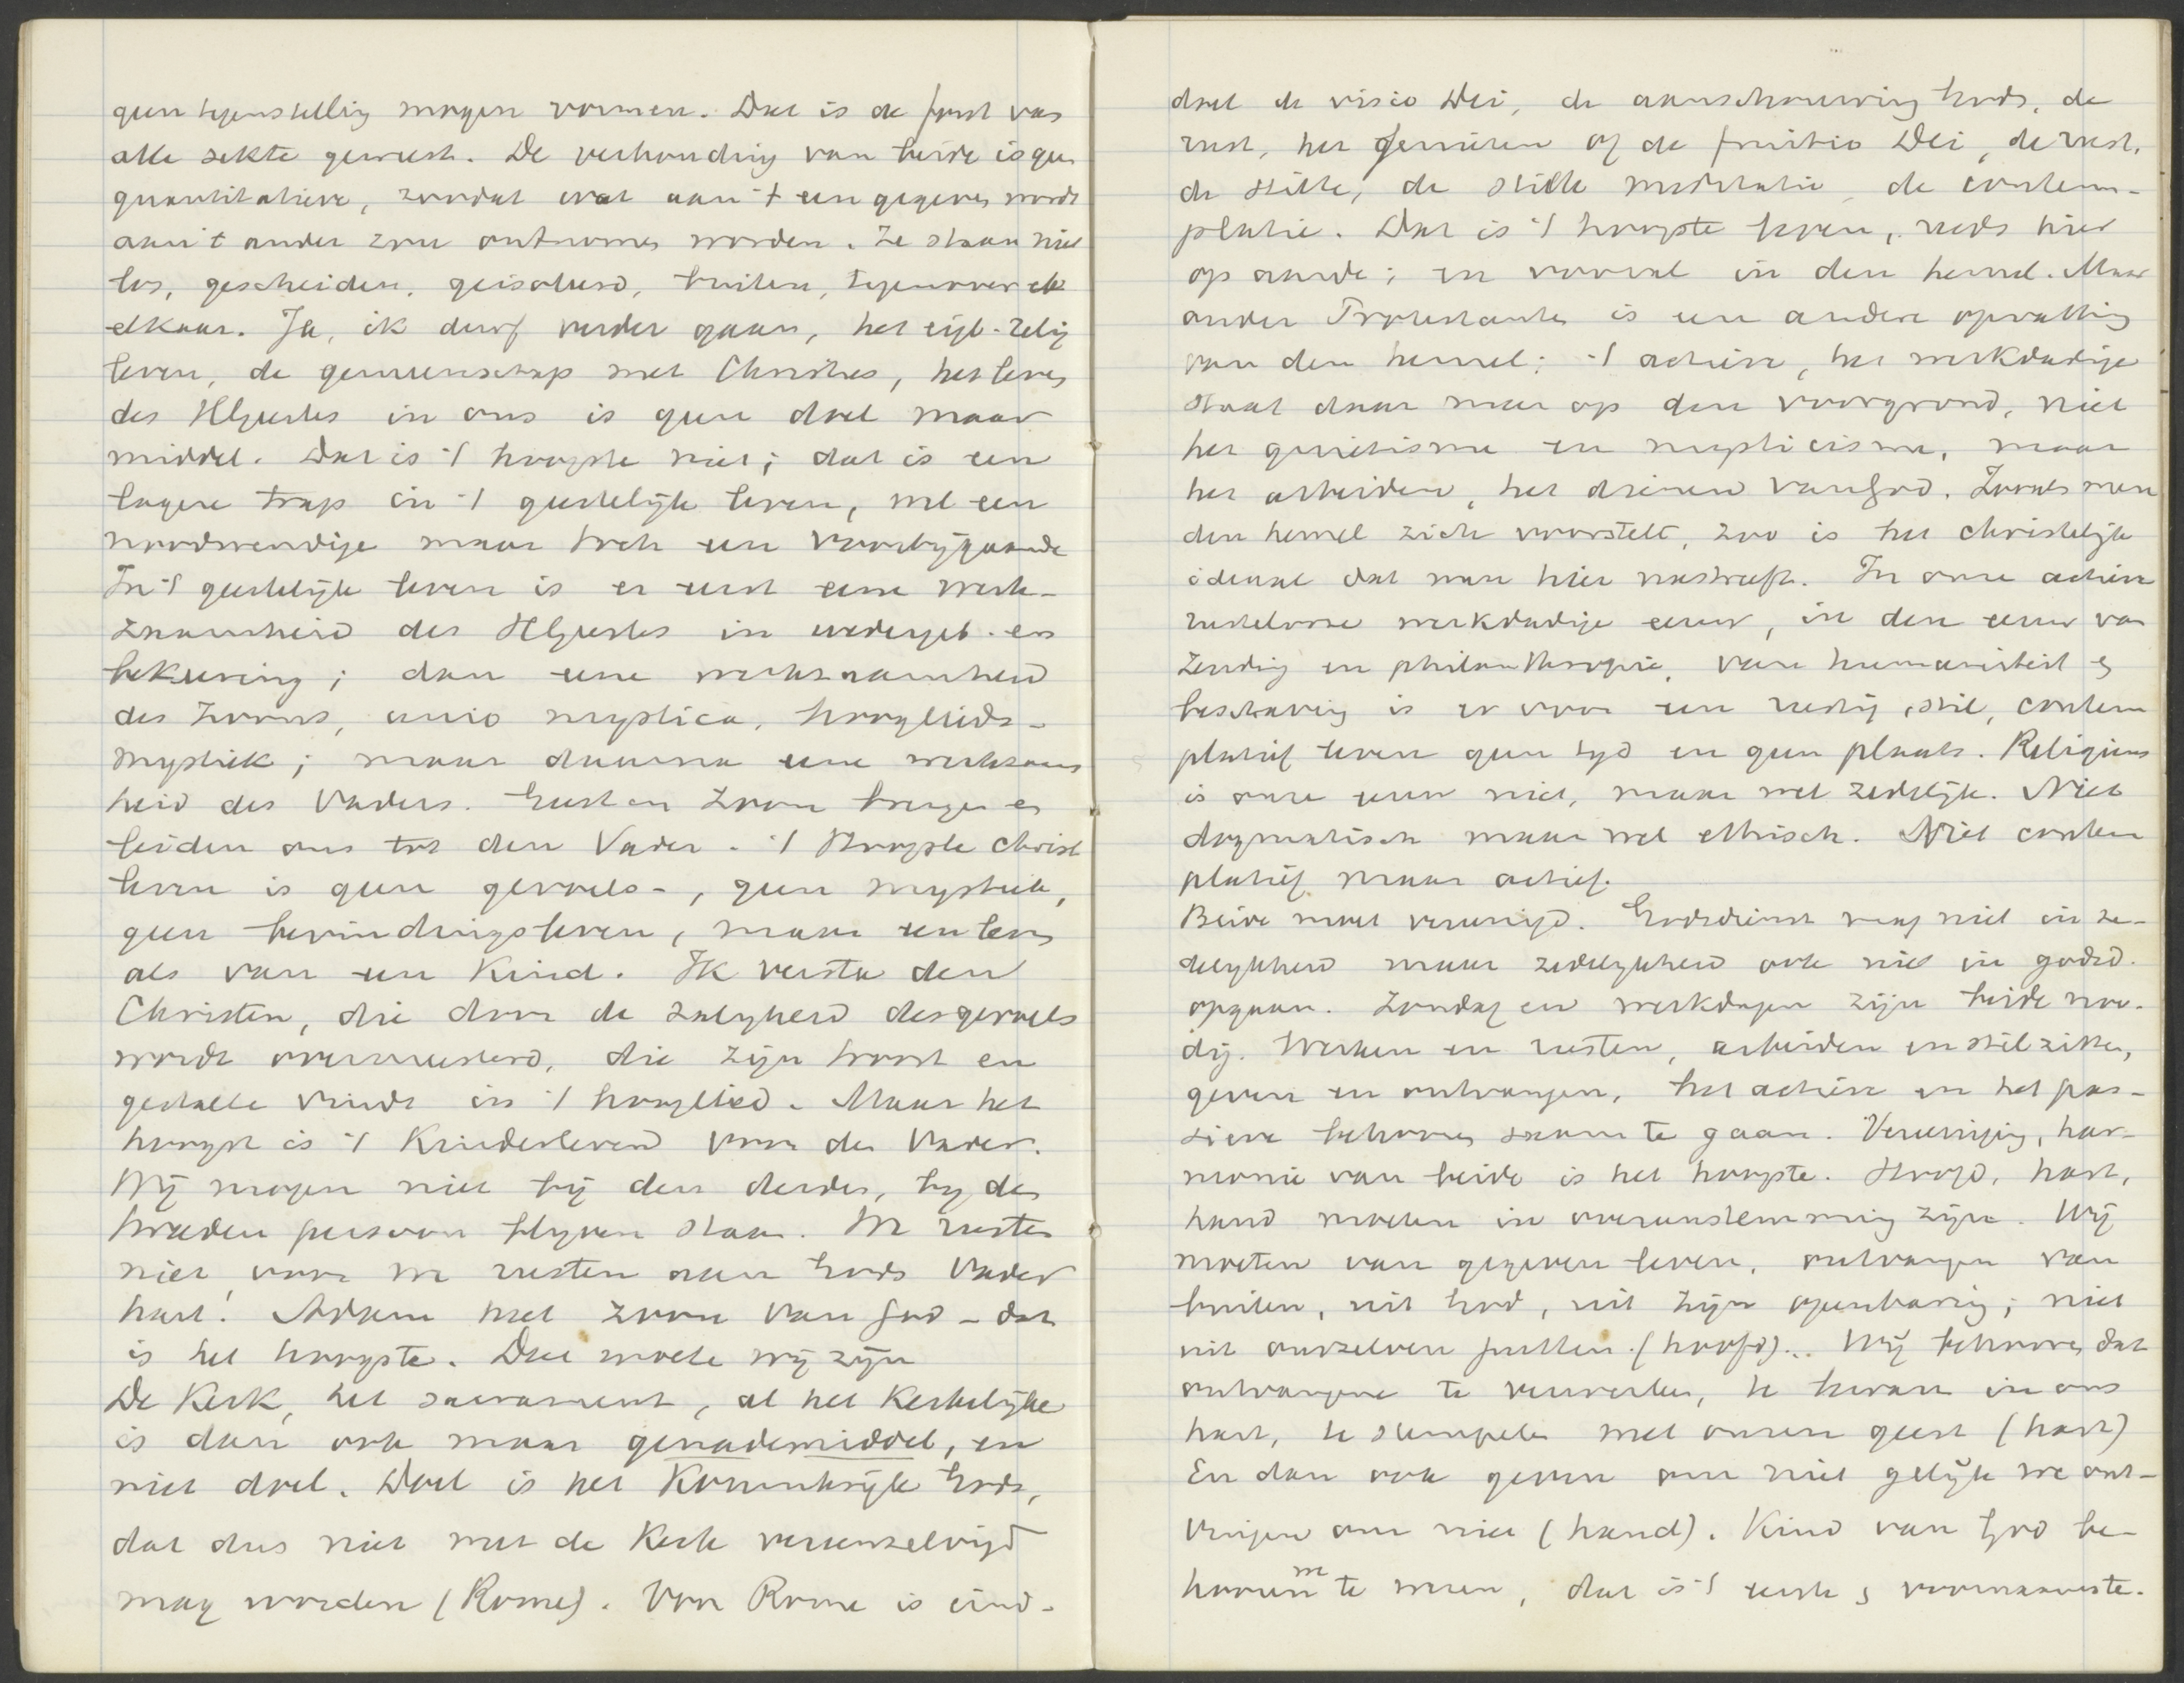 geen tegenstelling mogen vormen. Dat is de fout van
alle sekte geweest. De verhouding van beide is geen
quantitatieve, zoodat wat aan 't een gegeven wordt
aan 't ander zou ontnomen worden. Ze staan niet
los, gescheiden, geisoleerd, buiten, tegenover elk
elkaar. Ja, ik durf verder gaan, het eigl. relig
leven, de gemeenschap met Christus, het leven
des HGeestes in ons is geen doel maar
middel. Dat is 't hoogste niet; dat is een
lagere trap in 't geestelijk leven, wel een
noodwendige maar toch een voorbijgaande
In 't geestelijk leven is er eerst eene werk-
zaamheid des HGeestes in wedergeb. en
bekeering; dan eene werkzaamheid
des Zoons, unio mystica, hooglieds-
mystiek; maar daarna eene werkzaam
heid des Vaders. Geest en Zoon brengen en
leiden ons tot den Vader. 't Hoogste christ
leven is geen gevoels-, geen mystiek,
geen bevindingsleven, maar een leven
als van een Kind. Ik versta den
Christen, die door de zaligheid des gevoels
wordt overmeesterd, die zijn troost en
gestalte vindt in 't hooglied. Maar het
hoogst is 't Kinderleven voor den Vader.
Wij mogen niet bij den derden, by den
tweeden persoon blyven staan. We rusten
niet voor we rusten aan Gods Vader
hart! Adam heet zoon van God - dat
is het hoogste. Dat moete wij zijn
De Kerk, het sacrament, al het Kerkelijke
is dan ook maar genademiddel, en
niet doel. Doel is het Koninkrijk Gods,
dat dus niet met de Kerk vereenzelvigd
mag worden (Rome). Voor Rome is eind-
doel de visio Dei, de aanschouwing Gods, de
rust, het genieten of de fruitio Dei, de rust,
de stilte, de stille meditatie, de contem-
platie. Dat is 't hoogste leven, reeds hier
op aarde; en vooral in den hemel. Maar
onder Protestanten is een andere opvatting
van den hemel; 't actieve, het werkdadige
staat daar meer op den voorgrond, niet
het quiëtisme en mysticisme, maar
het arbeiden, het dienen van God. Zooals men
den hemel zich voorstelt, zoo is het christelijk
ideaal dat men hier nastreeft. In onze actieve
rustelooze werkdadige eeuw, in den eeuw van
Zending en philanthropie, van humaniteit en
beschaving is er voor een rustig, stil, contem
platief leven geen tyd en geen plaats. Religieus
is onze eeuw niet, maar wel zedelijk. Niet
dogmatisch maar wel ethisch. Niet contem
platief maar actief.
Beide moet vereenigd. Godsdienst mag niet in ze-
delykheid maar zedelykheid ook niet in godsd.
opgaan. Zondag en werkdagen zijn beide noo-
dig. Werken en rusten, arbeiden en stilzitten,
geven en ontvangen, het actieve en het pas-
sieve behooren saam te gaan. Vereeniging, har-
monie van beide is het hoogste. Hoofd, hart,
hand moeten in overeenstemming zijn. Wij
moeten van gegeven leven, ontvangen van
buiten, uit God, uit zijn openbaring; niet
uit onszelven putten (hoofd)... Wij behooren dat
ontvangene te verwerken, te bewaren in ons
hart, te stempelen met onzen geest (hart)
En dan ook geven om niet gelijk we ont-
vingen om niet (hand). Kind van God be-
hooren we te wezen, dat is 't eerste en voornaamste.